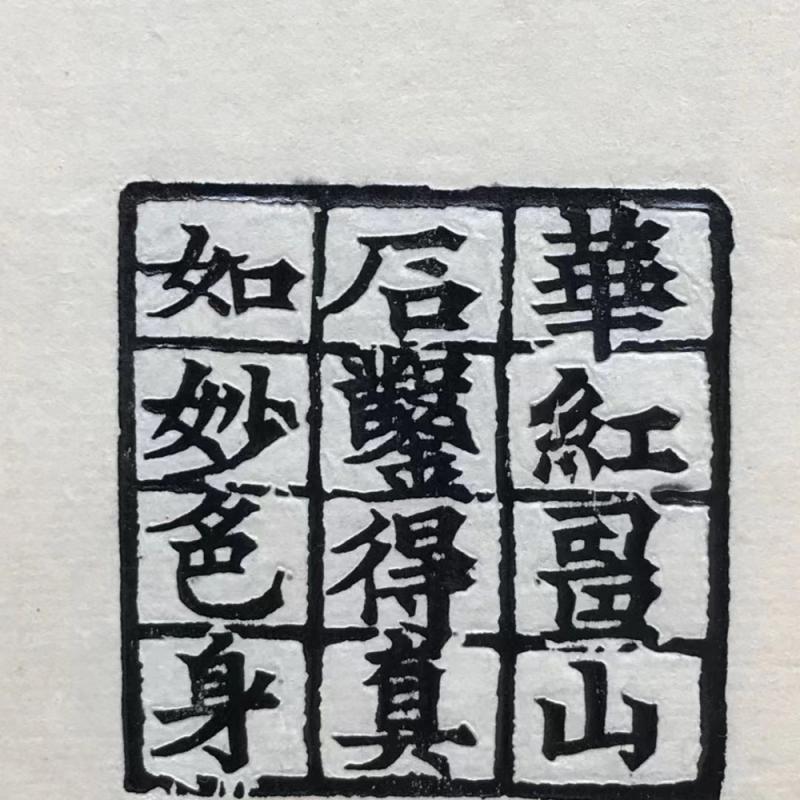 華紅山
石鑿得真
如妙色身